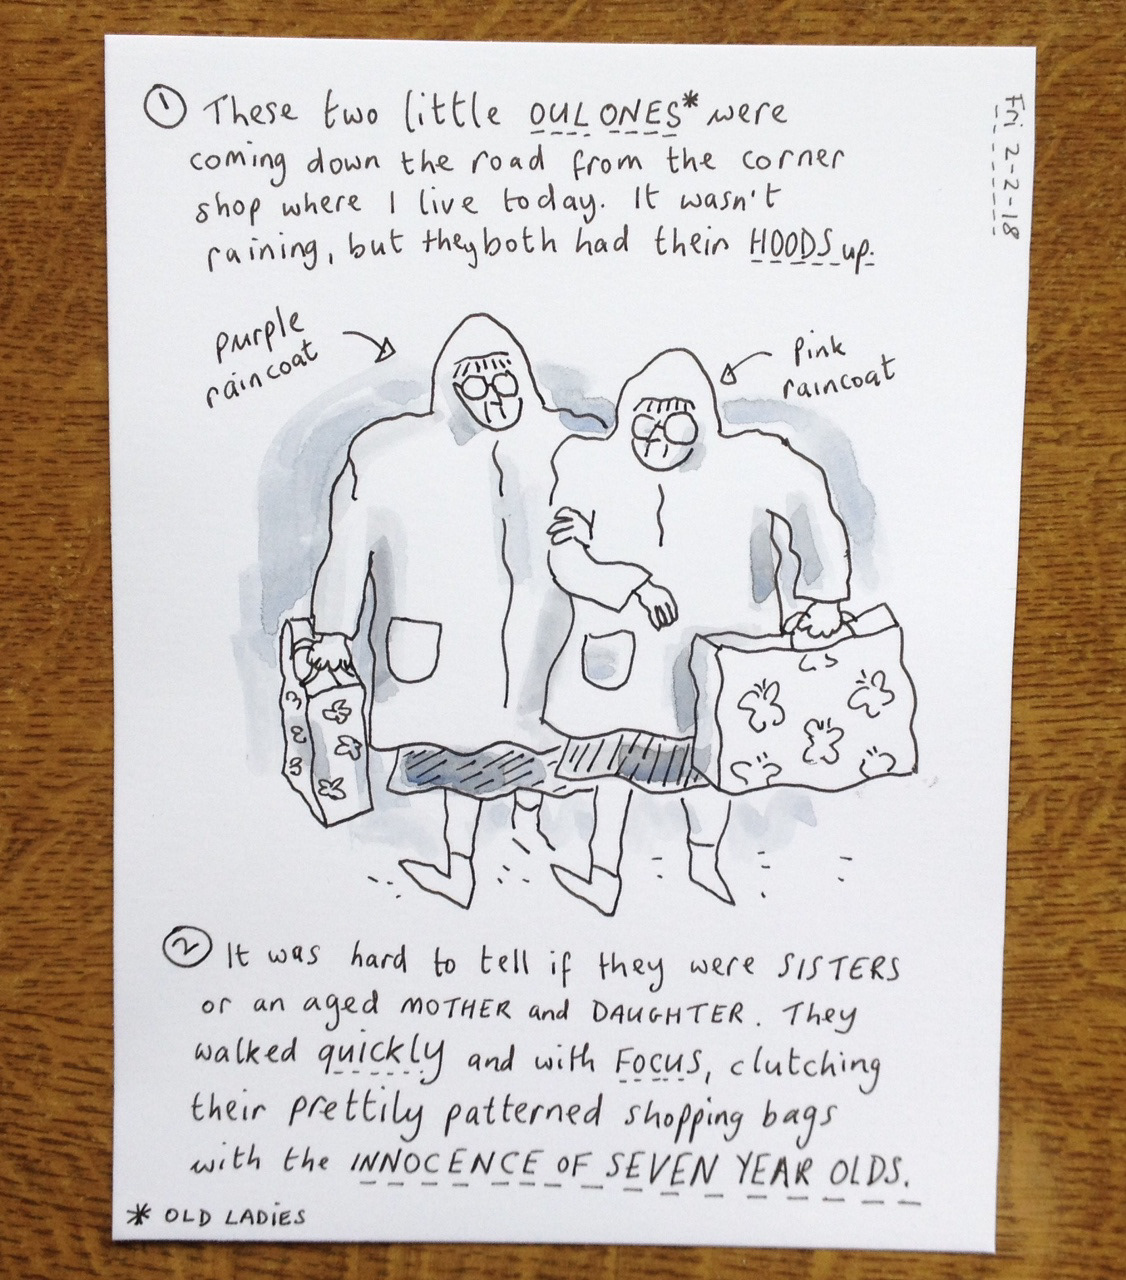 ① These two little OUL ONES* were
coming down the road from the corner
shop where I live today. It wasn't
raining, but they both had their HOODS up.
Fri 2-2-18
purple
raincoat
pink
raincoat
② It was hard to tell if they were SISTERS
or an aged MOTHER and DAUGHTER. They
walked quickly and with FOCUS, clutching
their prettily patterned shopping bags
with the INNOCENCE OF SEVEN YEAR OLDS.
* OLD LADIES